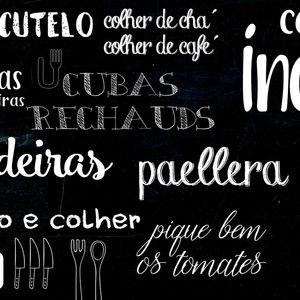 CUTELO
colher de chá
colher de café
CUBAS
RECHAUDS
deiras
paellera
o e colher
pique bem
os tomates